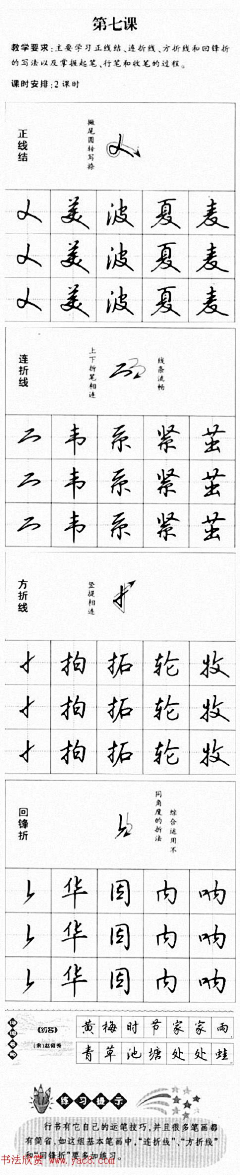 第七课
教学要求:主要学习正线结、连折线、方折线和回锋折
的写法以及掌握起笔、行笔和收笔的过程。
课时安排:2课时
正线结
撇尾圆转写捺
美 波 夏 麦
美 波 夏 麦
美 波 夏 麦
连折线
上下折笔相连
线条流畅
韦 系 紧 茧
韦 系 紧 茧
韦 系 紧 茧
方折线
竖提相连
拍 拓 轮 牧
拍 拓 轮 牧
拍 拓 轮 牧
回锋折
综合运用不
同角度的折法
华 因 内 呐
华 因 内 呐
华 因 内 呐
《约客》
(宋)赵师秀
黄梅时节家家雨
青草池塘处处蛙
练习提示
行书有它自己的运笔技巧,并且很多笔画都
有简省。如这组基本笔画中,“连折线”、“方折线”
和“回锋折”要多加练习。
书法欣赏 www.yac8.com